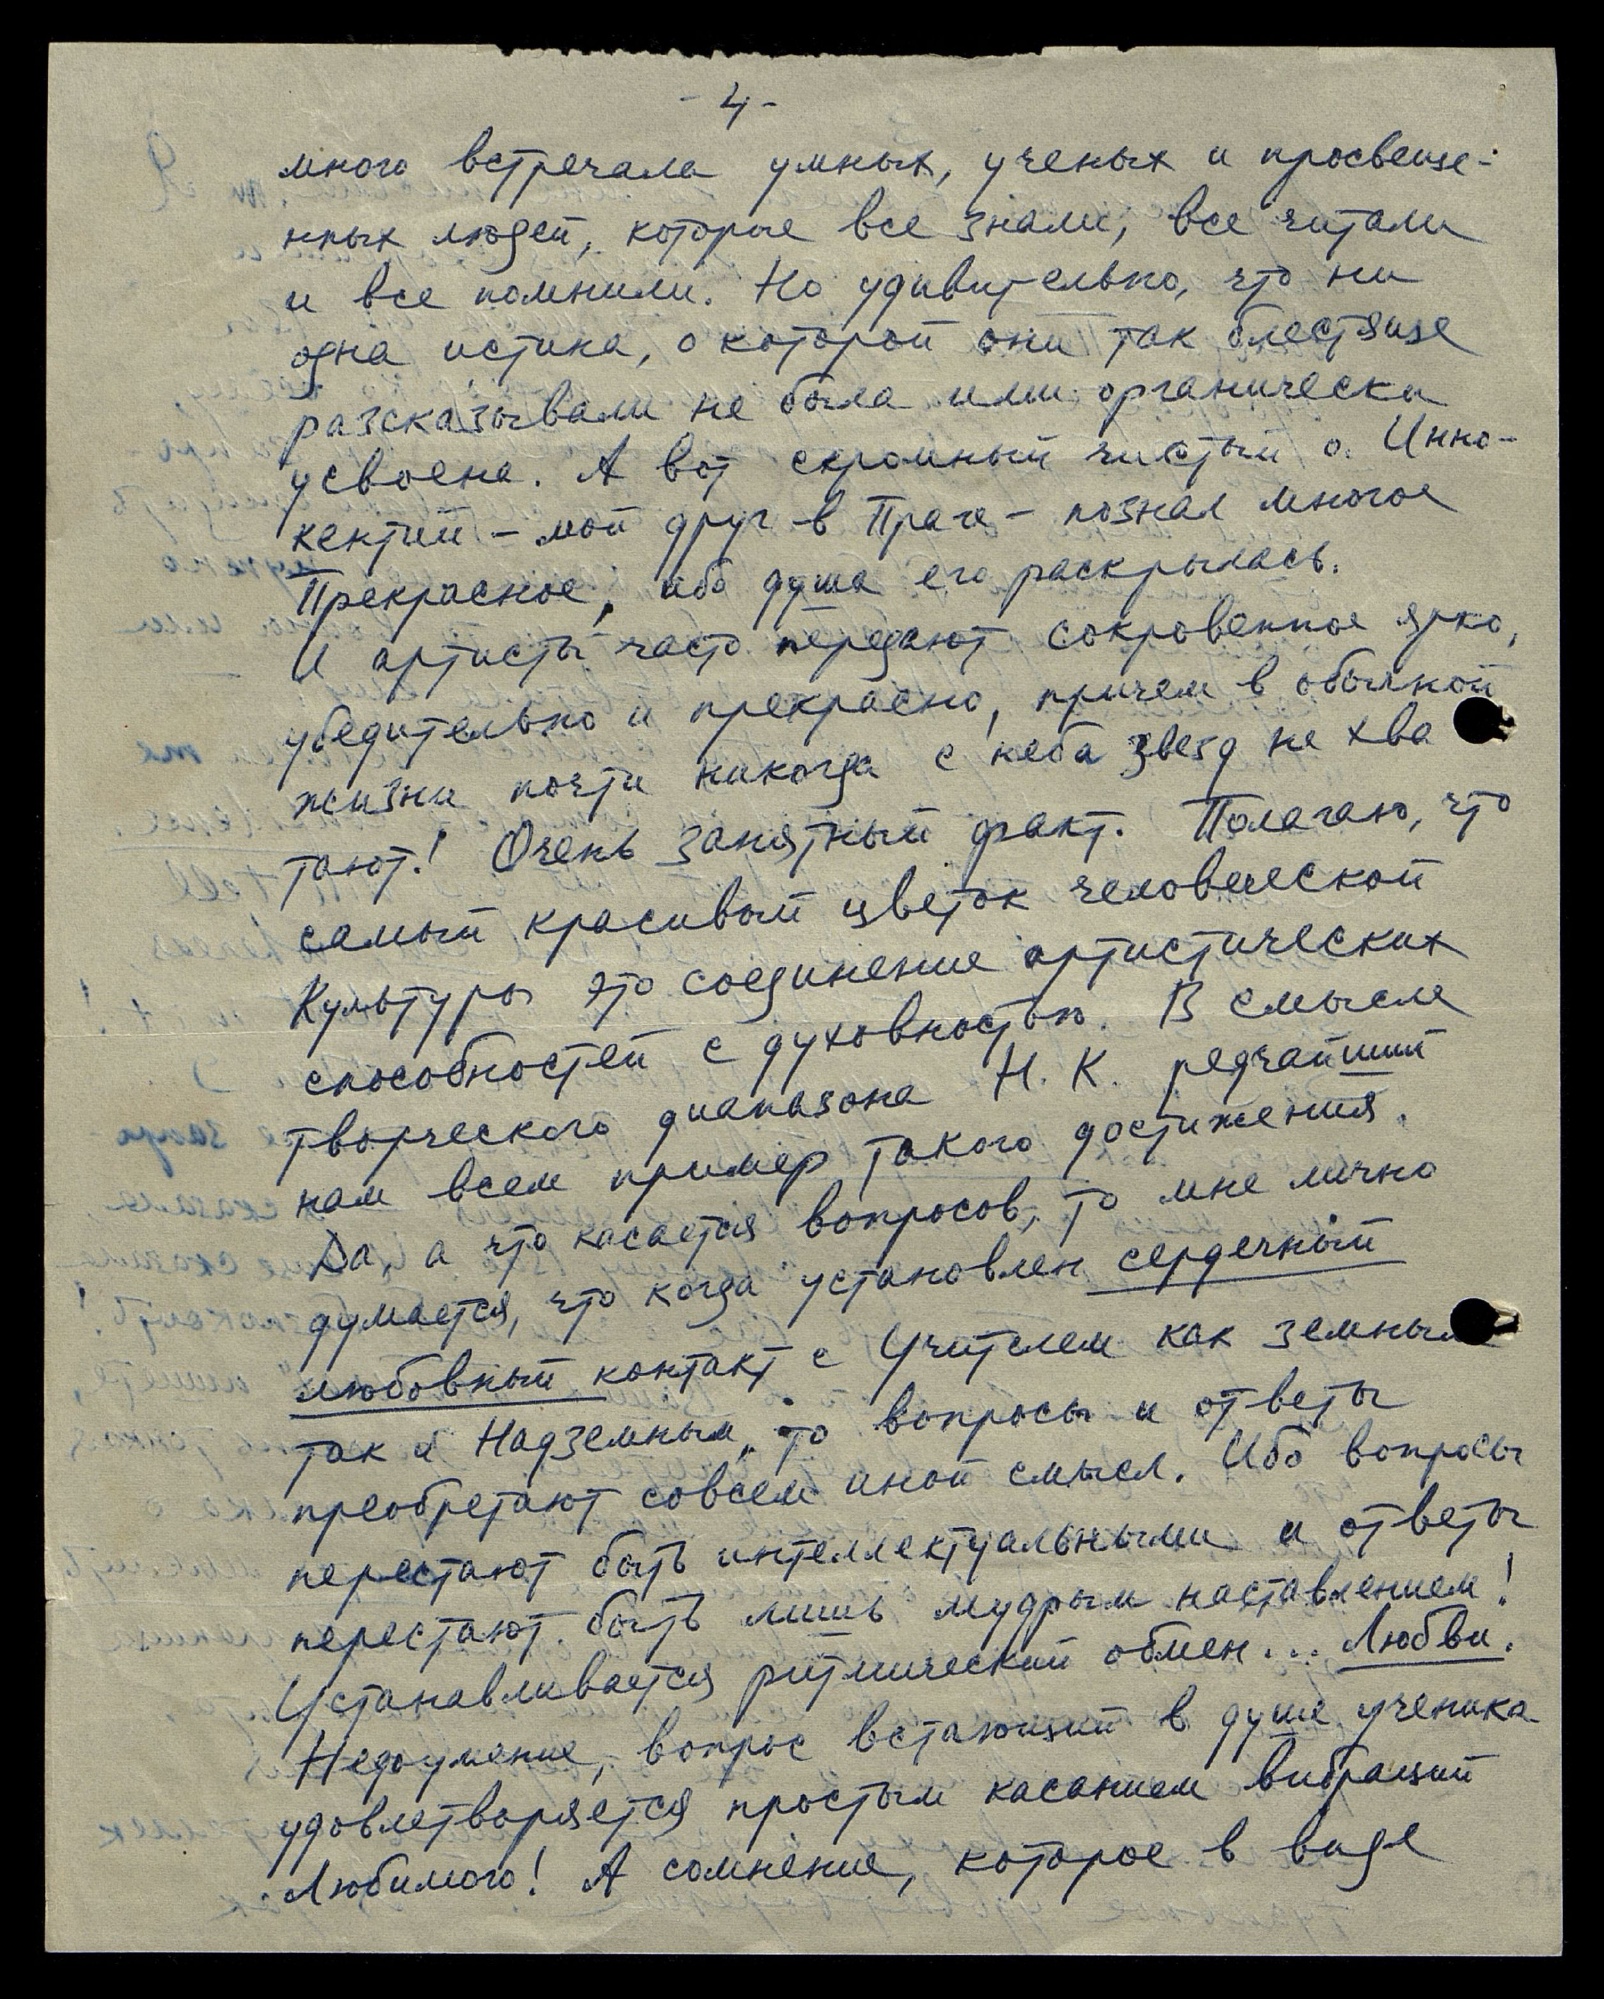 - 4 -
много встречала умных, ученых и просвеще-
нных людей, которые все знали, все читали
и все помнили. Но удивительно, что ни
одна истина, о которой они так блестяще
разсказывали не была ими органически
усвоена. А вот скромный чистый о. Инно-
кентий - мой друг в Праге - познал многое
Прекрасное, ибо душа его раскрылась.
И артисты часто передают сокровенное ярко,
убедительно и прекрасно, причем в обычной
жизни почти никогда с неба звезд не хва
тают! Очень занятный факт. Полагаю, что
самый красивый цветок человеческой
Культуры это соединение артистических
способностей с духовностью. В смысле
творческого диапазона Н. К. редчайший
нам всем пример такого достижения.
Да, а что касается вопросов, то мне лично
думается, что когда установлен сердечный
любовный контакт с Учителем как земным
так и Надземным, то вопросы и ответы
преобретают совсем иной смысл. Ибо вопросы
перестают быть интеллектуальными и ответы
перестают быть лишь мудрым наставлением!
Устанавливается ритмический обмен... Любви.
Недоумение, вопрос встающий в душе ученика
удовлетворяется простым касанием вибраций
Любимого! А сомнение, которое в виде